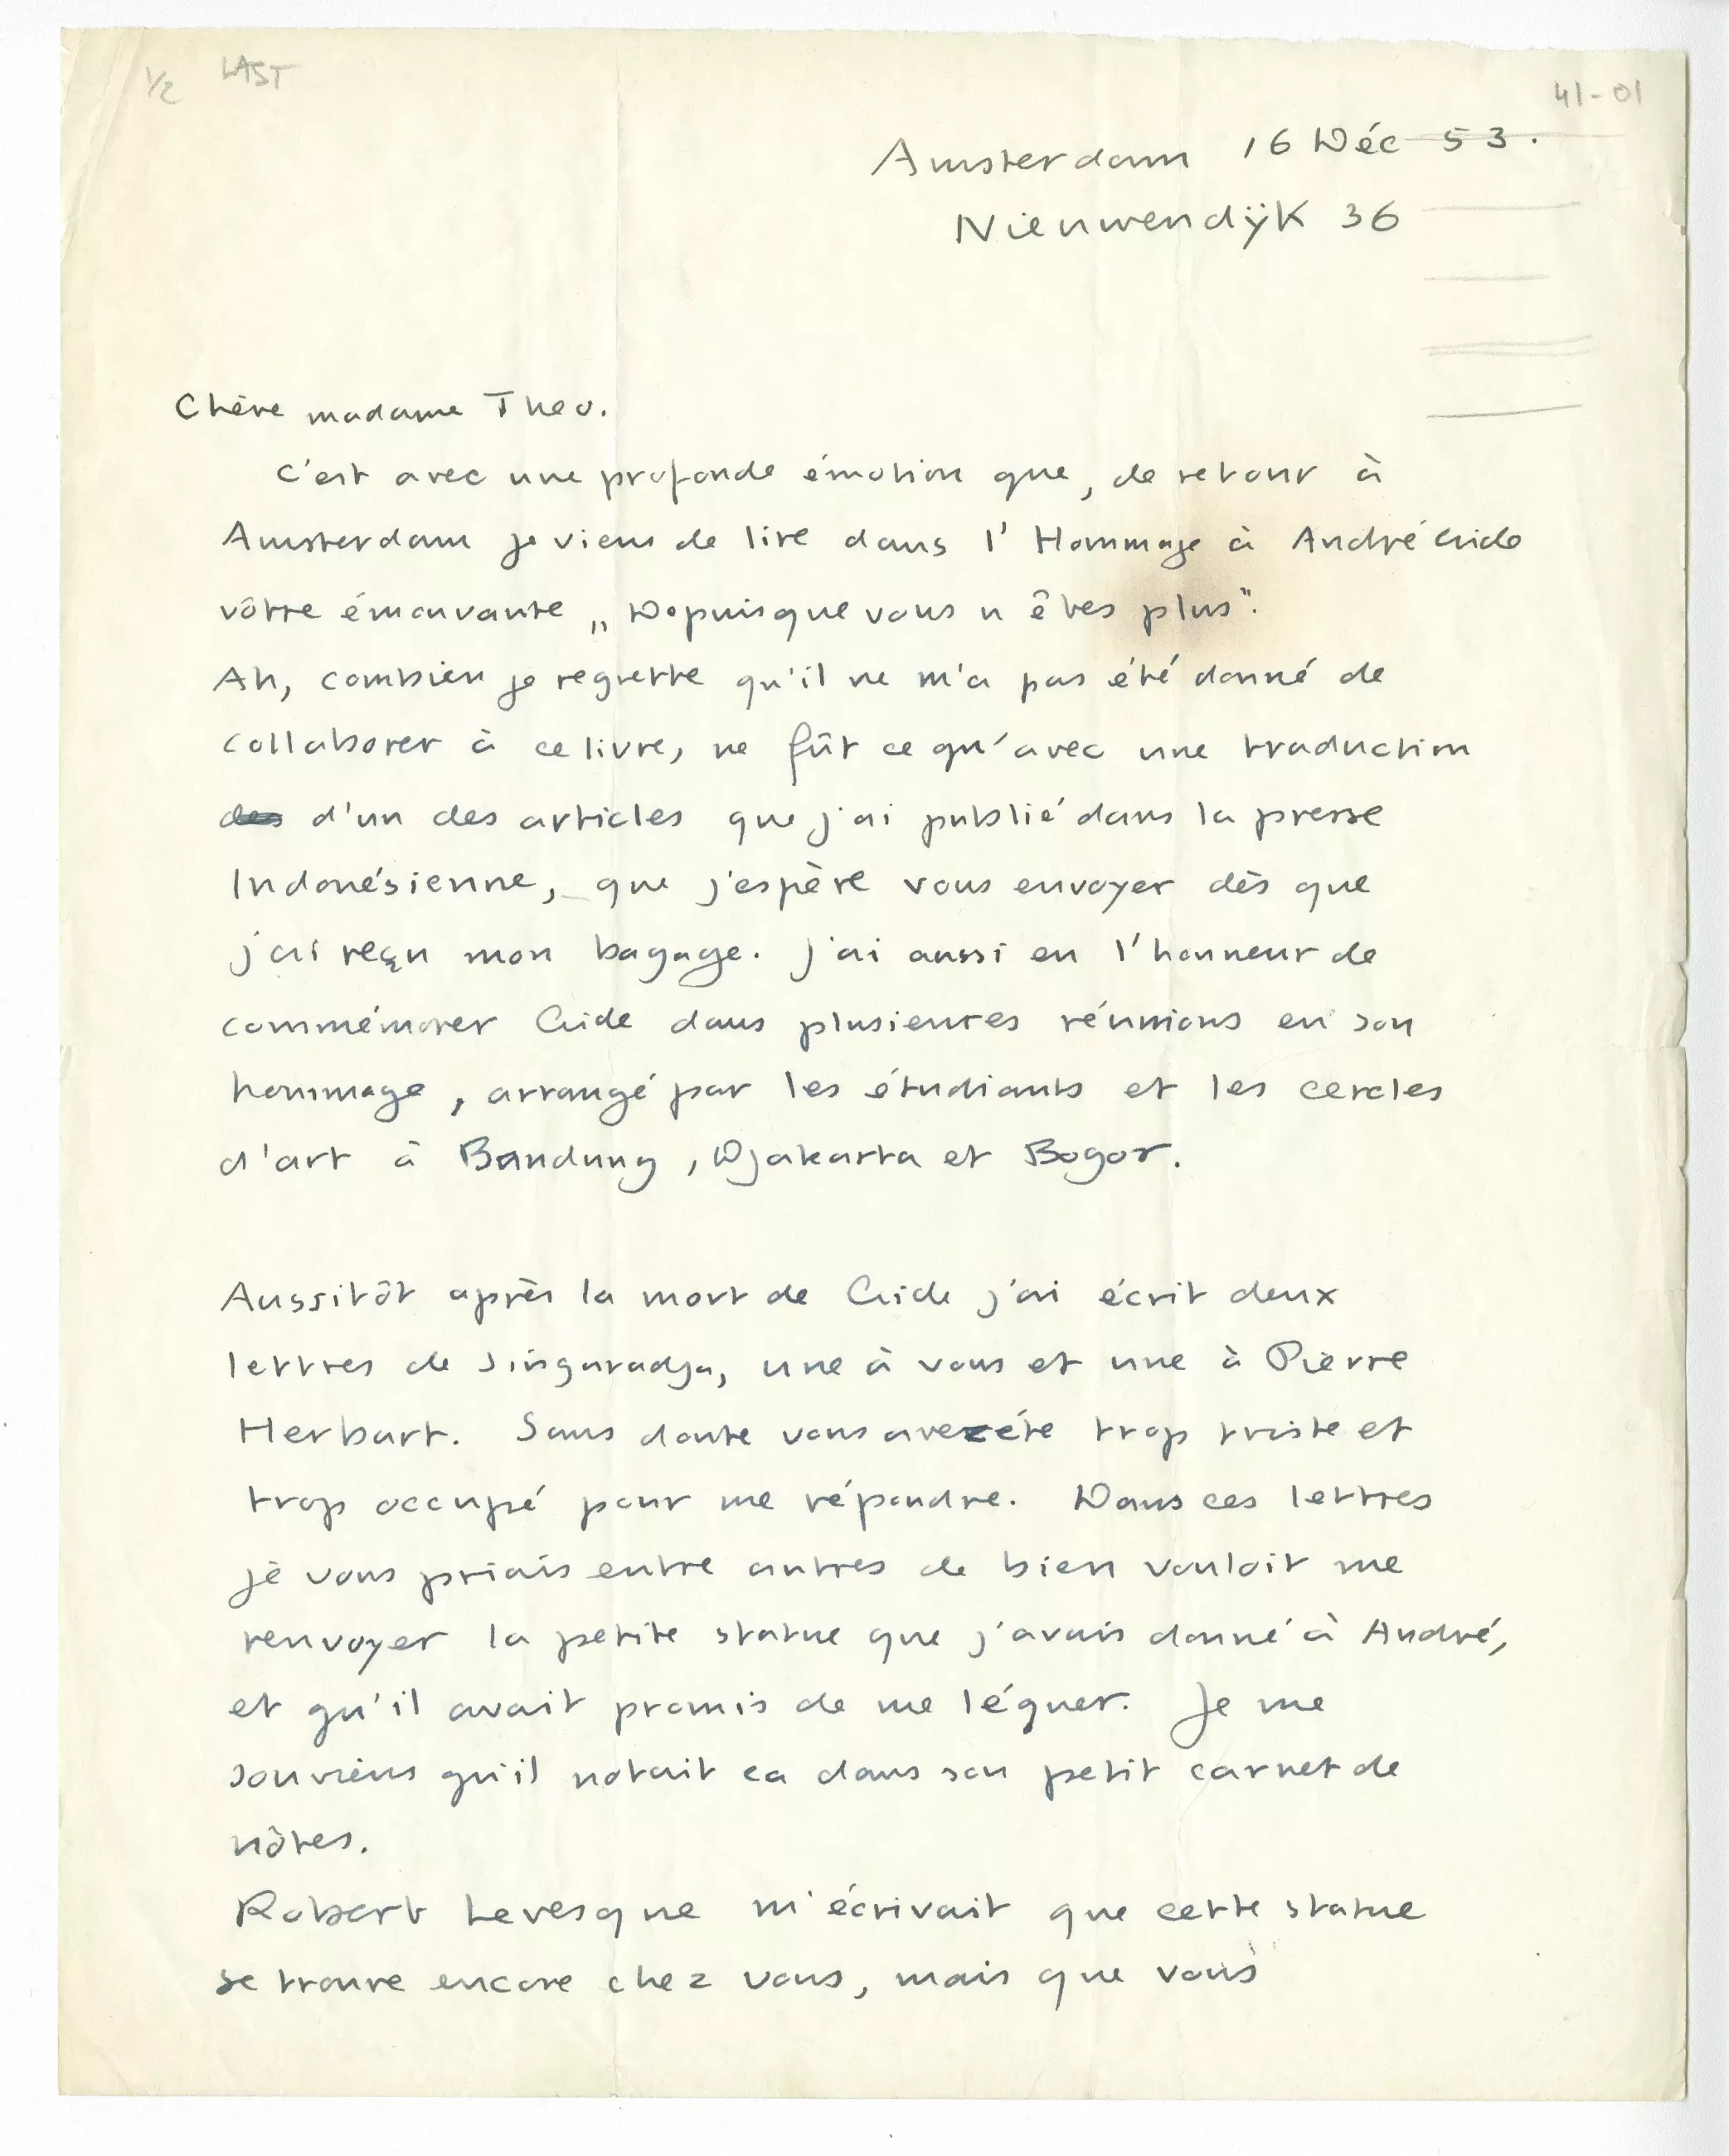 1/2 LAST
41-01
Amsterdam 16 Déc 53.
Nieuwendÿk 36
Chère madame Theo.
C'est avec une profonde émotion que, de retour à
Amsterdam je viens de lire dans l'Hommage à André Gide
vôtre émouvante „Depuisque vous n'êtes plus".
Ah, combien je regrette qu'il ne m'a pas été donné de
collaborer à ce livre, ne fût ce qu'avec une traduction
des d'un des articles que j'ai publié dans la presse
Indonésienne, que j'espère vous envoyer dès que
j'ai reçu mon bagage. J'ai aussi eu l'honneur de
commémorer Gide dans plusieures réunions en son
hommage, arrangé par les étudiants et les cercles
d'art à Bandung, Djakarta et Bogor.
Aussitôt après la mort de Gide j'ai écrit deux
lettres de Singaradja, une à vous et une à Pierre
Herbart. Sans doute vous avez été trop triste et
trop occupé pour me répondre. Dans ces lettres
je vous priais entre autres de bien vouloir me
renvoyer la petite statue que j'avais donné à André,
et qu'il avait promis de me léguer. Je me
souviens qu'il notait ca dans son petit carnet de
nôtes.
Robert Levesque m'écrivait que cette statue
se trouve encore chez vous, mais que vous